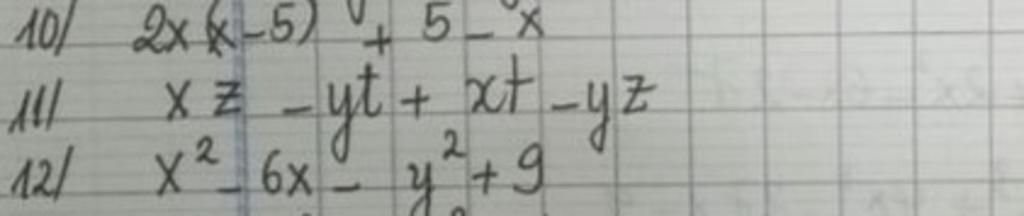 10/ 2x(x-5) + 5 - x
11/ xz - yt + xt - yz
12/ x² - 6x - y² + 9